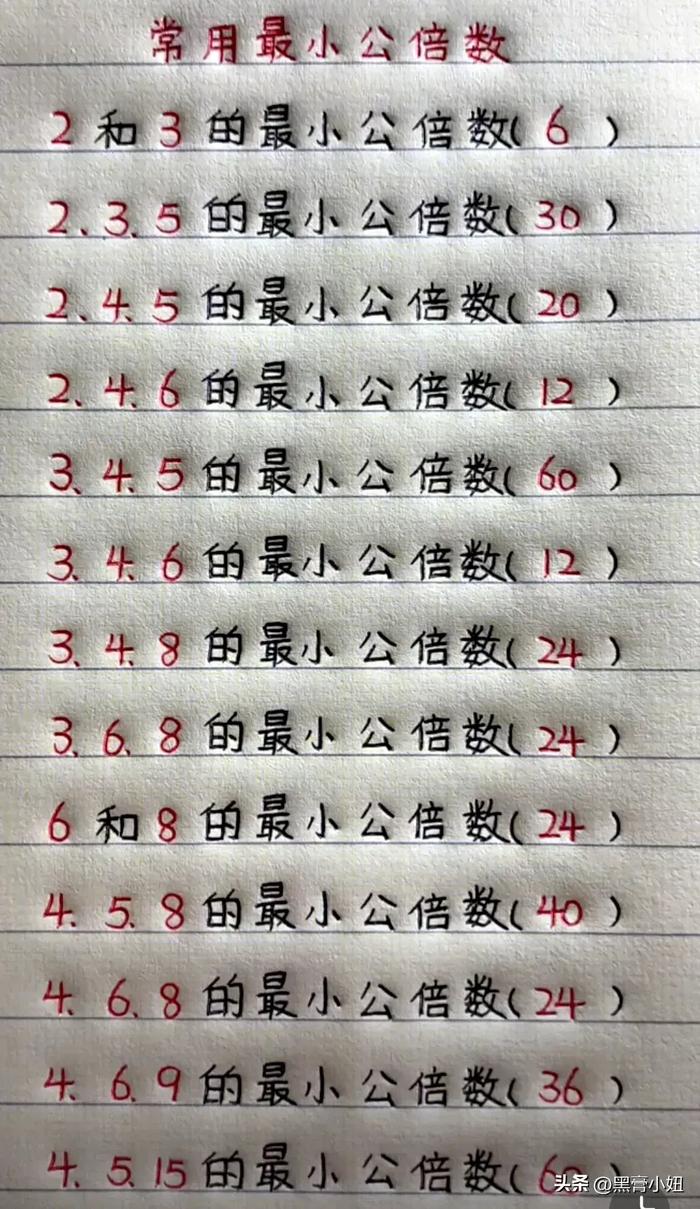 常用最小公倍数
2和3的最小公倍数(6)
2、3、5的最小公倍数(30)
2、4、5的最小公倍数(20)
2、4、6的最小公倍数(12)
3、4、5的最小公倍数(60)
3、4、6的最小公倍数(12)
3、4、8的最小公倍数(24)
3、6、8的最小公倍数(24)
6和8的最小公倍数(24)
4、5、8的最小公倍数(40)
4、6、8的最小公倍数(24)
4、6、9的最小公倍数(36)
4、5、15的最小公倍数(60)
头条 @黑膏小妞